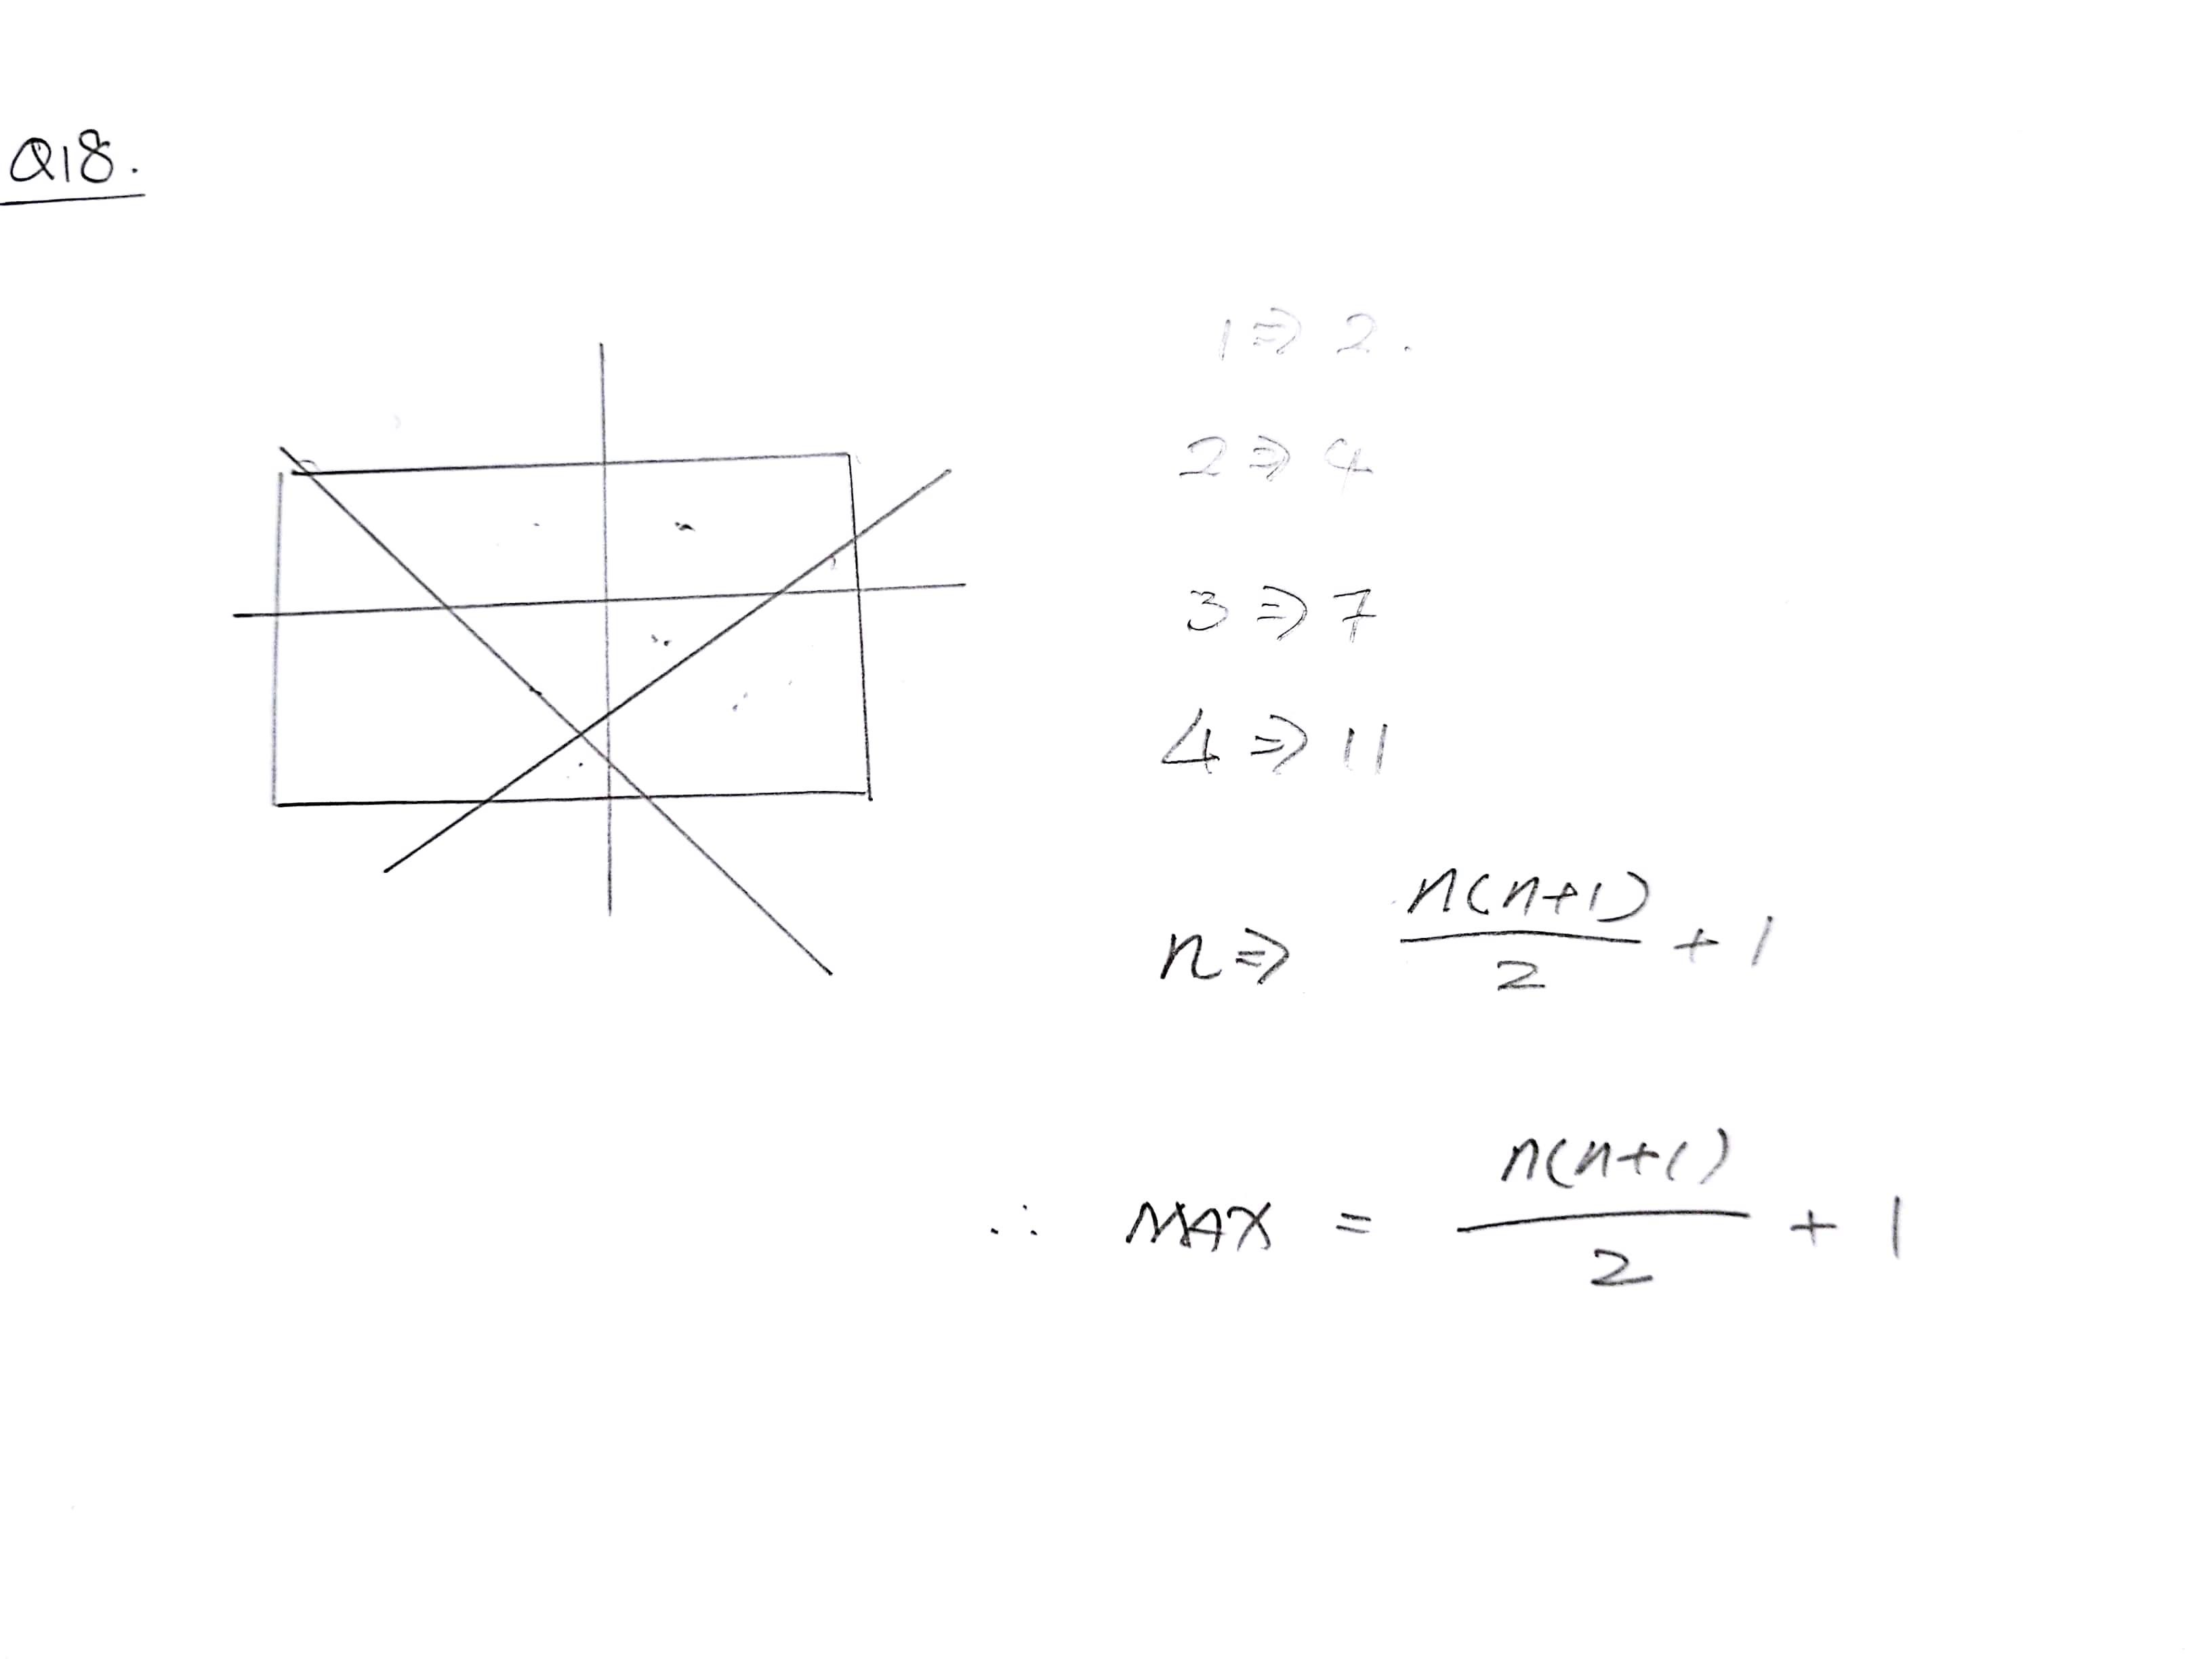 Q18.
1 ⇒ 2.
2 ⇒ 4
3 ⇒ 7
4 ⇒ 11
n ⇒ n(n+1)/2 + 1
∴ MAX = n(n+1)/2 + 1